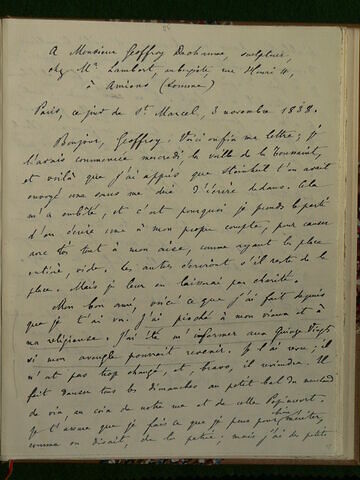 A Monsieur Geoffroy Dechaume, sculpteur,
chez Mr. Lambert, aubergiste rue Henri 4,
à Amiens (Somme)
Paris, ce jour de St. Marcel, 3 novembre 1838.
Bonjour, Geoffroy. Voici enfin ma lettre; je
l'avais commencée mercredi la veille de la Toussaint,
et voilà que j'ai appris que Steinheil t'en avait
envoyé une sans me dire d'écrire dedans. Cela
m'a embêté, et c'est pourquoi je prends le parti
d'en écrire une à mon propre compte, pour causer
avec toi tout à mon aise, comme ayant la place
entière, vide. Les autres écriront s'il reste de la
place. Mais je leur en laisserai pas charité.
Mon bon ami, voici ce que j'ai fait depuis
que je t'ai vu. J'ai pioché à mon vieux et à
ma religieuse. J'ai été m'informer aux Quinze Vingts
si mon aveugle pourrait revenir. Je l'ai revu; il
n'est pas trop changé, et, bravo, il reviendra. Il
fait danser tous les dimanches au petit bal du marchand
de vin, au coin de notre rue et de celle Popincourt.
Je t'assure que je fais ce que je peux pour bien mériter,
comme on disait, de la patrie; mais j'ai de petits